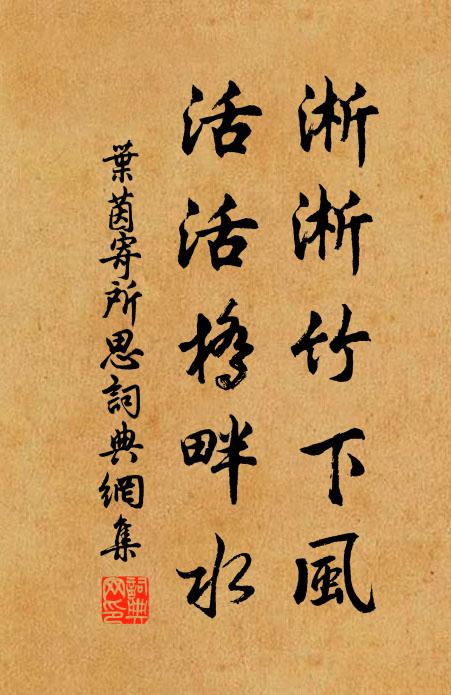 淅淅竹下風
活活橋畔水
葉茵寄所思詞典網集
詞典
网印